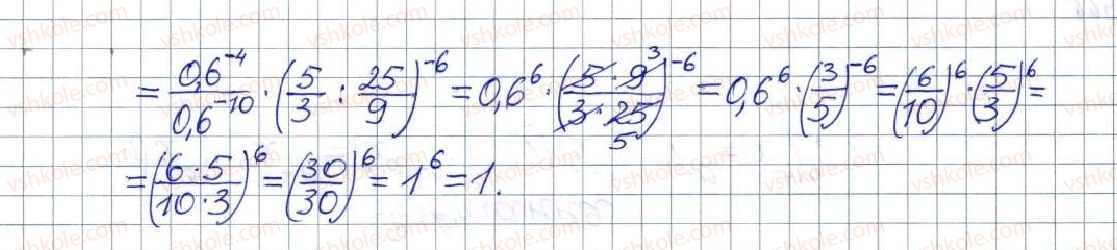 = 0,6⁻⁴/0,6⁻¹⁰ · (5/3 : 25/9)⁻⁶ = 0,6⁶ · (5 · 9 3/3 · 25 5)⁻⁶ = 0,6⁶ · (3/5)⁻⁶ = (6/10)⁶ · (5/3)⁶ =
= (6 · 5/10 · 3)⁶ = (30/30)⁶ = 1⁶ = 1.
vshkole.com